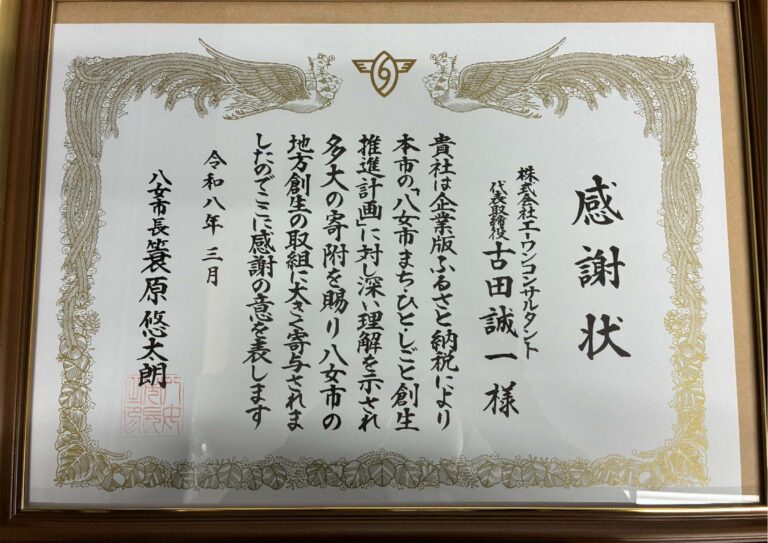 感謝状
株式会社エーワンコンサルタント
代表取締役 古田誠一様
貴社は企業版ふるさと納税により
本市の「八女市まち・ひと・しごと創生
推進計画」に対し深い理解を示され
多大の寄附を賜り八女市の
地方創生の取組に大きく寄与されま
したのでここに感謝の意を表します
令和八年 三月
八女市長 簑原悠太朗